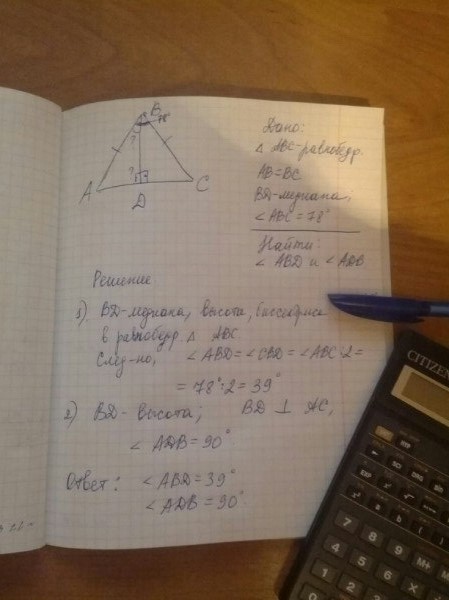 B
78°
?
?
A
C
D
Дано:
△ ABC-равнобедр.
AB=BC
BD-медиана,
∠ABC=78°
Найти:
∠ ABD и ∠ADB
Решение
1) BD-медиана, высота, биссектриса
в равнобедр. △ ABC
След-но, ∠ABD=∠CBD=∠ABC:2=
=78°:2=39°
2) BD-высота; BD ⊥ AC,
∠ADB=90°
Ответ: ∠ABD=39°
∠ADB=90°.
CITIZEN
EXP
7 8 9 M+
4 5 6
1 2 3
0